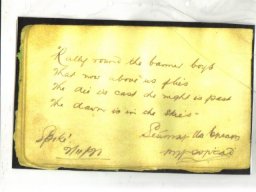 "Rally round the banner boys
That now above us flies
The die is cast the night is past
The dawn is in the skies"
Seamas